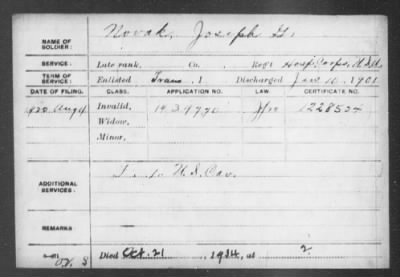 NAME OF SOLDIER: Novak, Joseph G.
SERVICE: Late rank, Co. Reg't Hosp. Corps, U.S.A.
TERM OF SERVICE: Enlisted 1 Discharged Jan 10, 1901
DATE OF FILING. CLASS. APPLICATION NO. LAW CERTIFICATE NO.
Aug 9 Invalid, 1439790 1228524
Widow,
Minor,
ADDITIONAL SERVICES: U.S. Cav.
REMARKS
Died Oct. 21, 1934, at ?